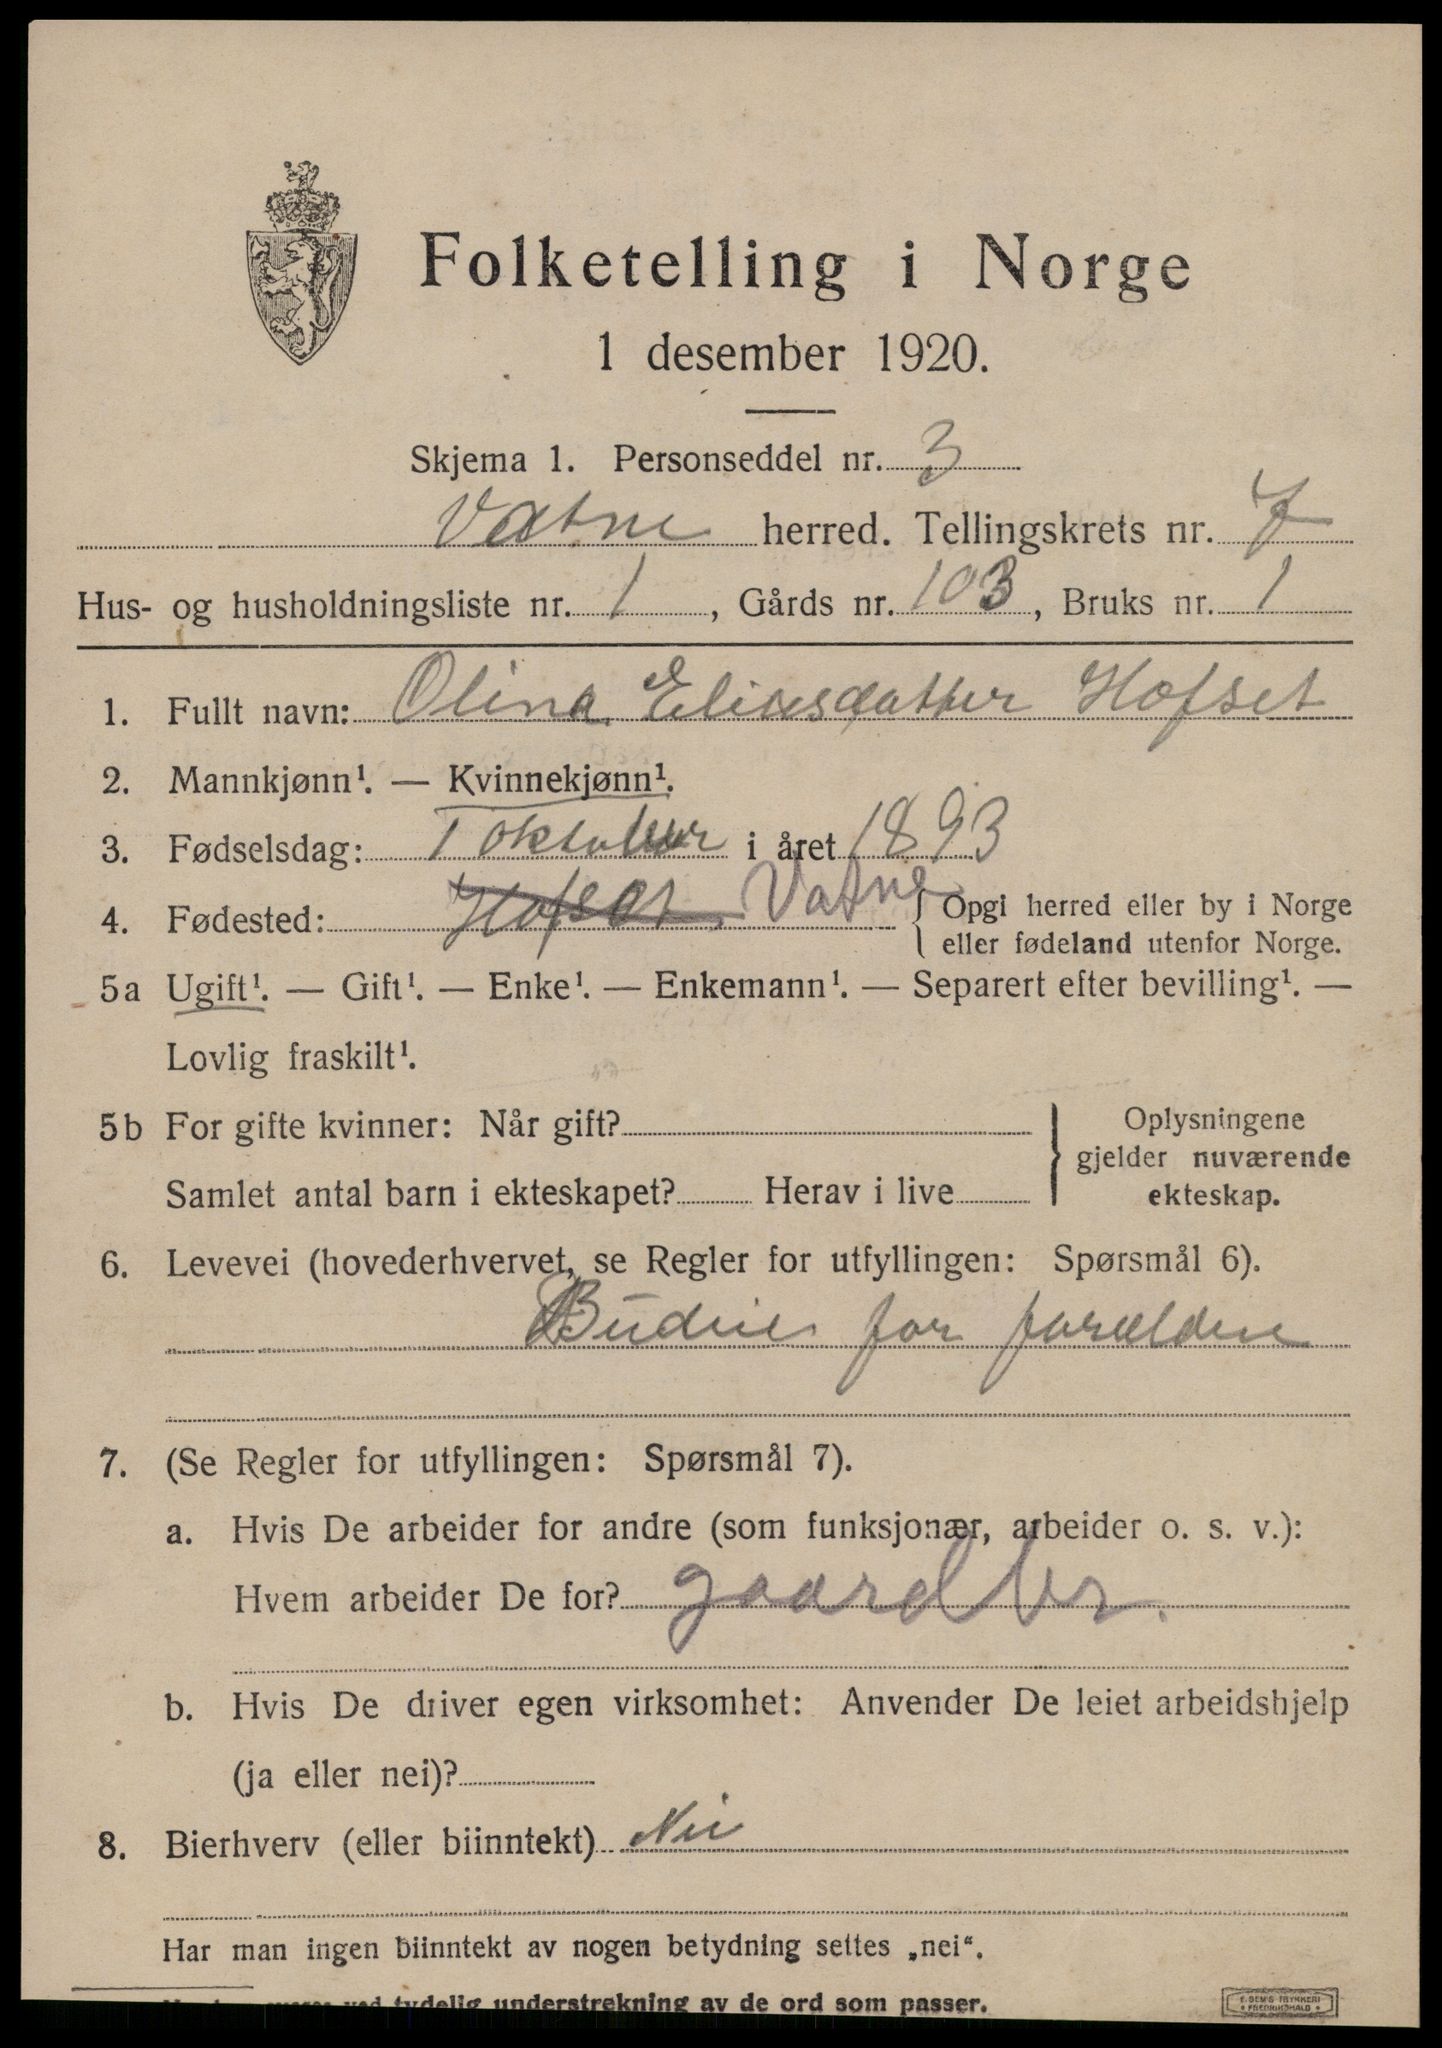 Folketelling i Norge
1 desember 1920.
Skjema 1. Personseddel nr. 3
Vatne herred. Tellingskrets nr. 7
Hus- og husholdningsliste nr. 1, Gårds nr. 103, Bruks nr. 1
1. Fullt navn: Olina Eliasdatter Hofset
2. Mannkjønn¹. — Kvinnekjønn¹.
3. Fødselsdag: 1 oktober i året 1893
4. Fødested: Hofset, Vatne { Opgi herred eller by i Norge
eller fødeland utenfor Norge.
5a Ugift¹. — Gift¹. — Enke¹. — Enkemann¹. — Separert efter bevilling¹. —
Lovlig fraskilt¹.
5b For gifte kvinner: Når gift?
Samlet antal barn i ekteskapet? Herav i live
} Oplysningene
gjelder nuværende
ekteskap.
6. Levevei (hovederhvervet, se Regler for utfyllingen: Spørsmål 6).
Budeie for forældre
7. (Se Regler for utfyllingen: Spørsmål 7).
a. Hvis De arbeider for andre (som funksjonær, arbeider o. s. v.):
Hvem arbeider De for? gaardbr.
b. Hvis De driver egen virksomhet: Anvender De leiet arbeidshjelp
(ja eller nei)?
8. Bierhverv (eller biinntekt) Nei
Har man ingen biinntekt av nogen betydning settes „nei“.
ved tydelig understrekning av de ord som passer.
E. SEM'S TRYKKERI
FREDRIKSHALD